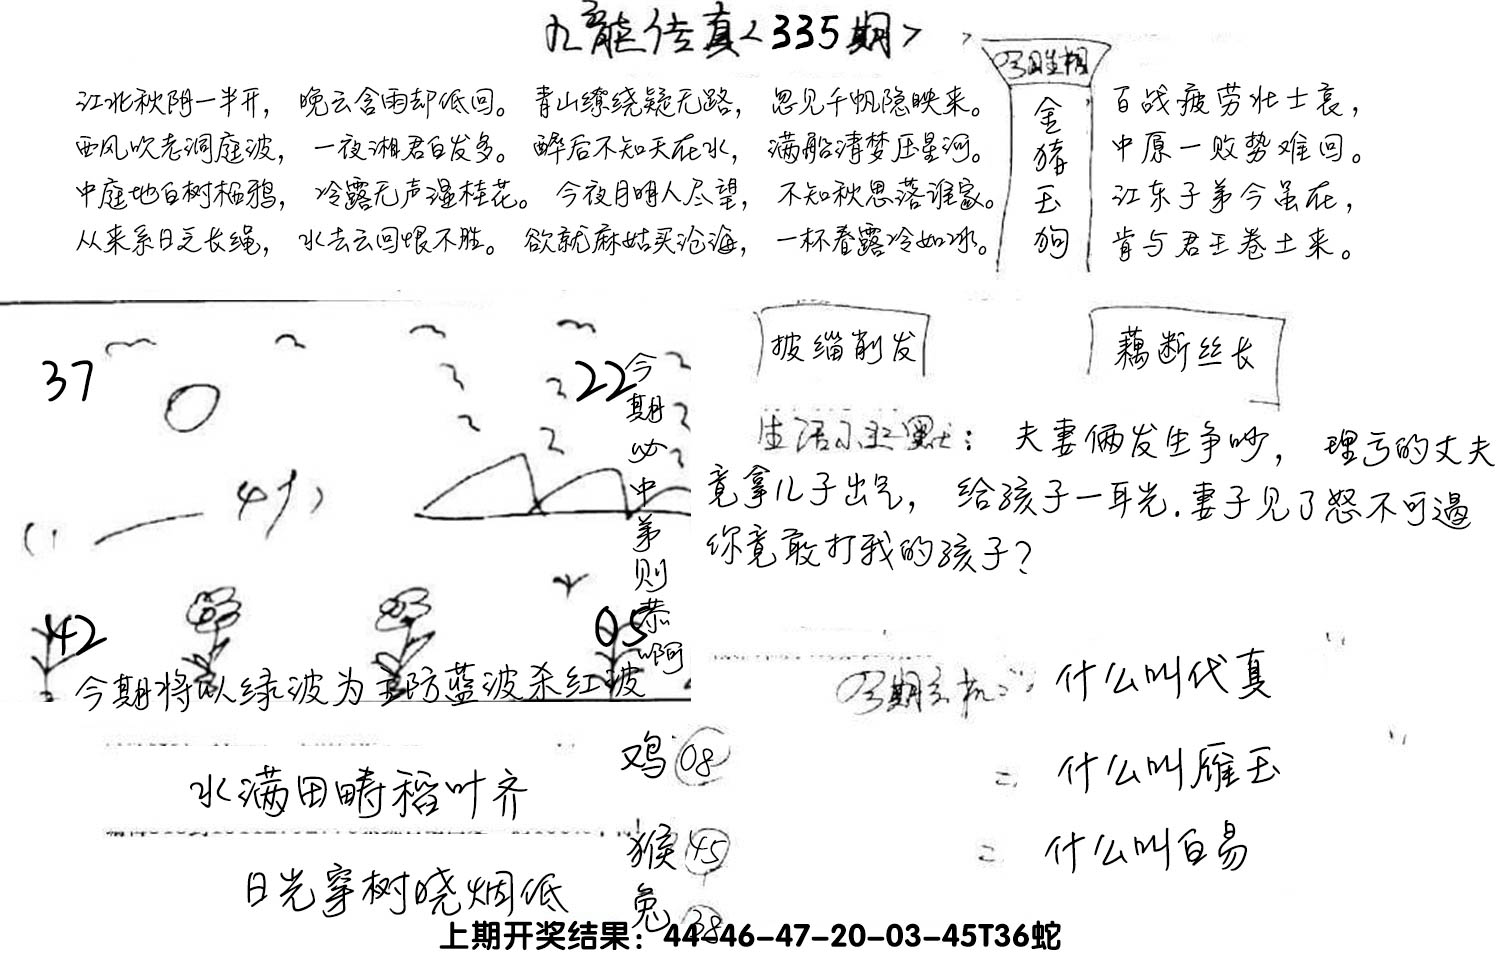 九龍传真<335期>
江北秋阴一半开， 晚云含雨却低回。 青山缭绕疑无路， 忽见千帆隐映来。
西风吹老洞庭波， 一夜湘君白发多。 醉后不知天在水， 满船清梦压星河。
中庭地白树栖鸦， 冷露无声湿桂花。 今夜月明人尽望， 不知秋思落谁家。
从来系日乏长绳， 水去云回恨不胜。 欲就麻姑买沧海， 一杯春露冷如冰。
金猪玉狗
百战疲劳壮士哀，
中原一败势难回。
江东子弟今虽在，
肯与君王卷土来。
37
22
42
05
今期必中弟则恭啊
今期将以绿波为主防蓝波杀红波
披缁削发
藕断丝长
生活小幽默： 夫妻俩发生争吵， 理亏的丈夫
竟拿儿子出气， 给孩子一耳光.妻子见了怒不可遏
你竟敢打我的孩子?
什么叫代真
= 什么叫雁玉
= 什么叫白易
水满田畴稻叶齐
日光穿树晓烟低
鸡 08
猴 45
兔 38
上期开奖结果：44-46-47-20-03-45T36蛇